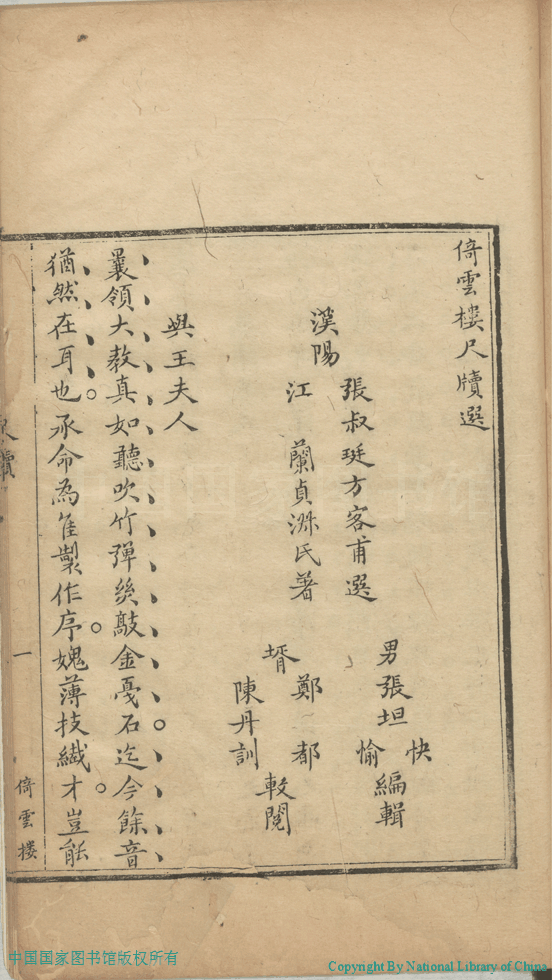 倚雲樓尺牘選
漢陽
張叔珽方客甫選
江 蘭貞淑氏著
男張坦
快
愉
編輯
壻
鄭 都
陳丹訓
較閱
與王夫人
曩領大教真如聽吹竹彈絲敲金戞石迄今餘音
猶然在耳也。承命為隹製作序。媿薄技纎才。豈能
尺牘
一
倚雲樓
中国国家图书馆版权所有
Copyright By National Library of China